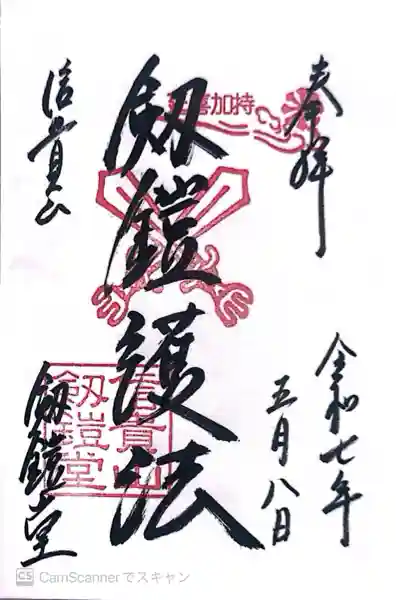 奉拝
令和七年
五月八日
延喜加持
剱鎧護法
信貴山
剱鎧堂
信貴山
剱鎧堂
CS CamScannerでスキャン